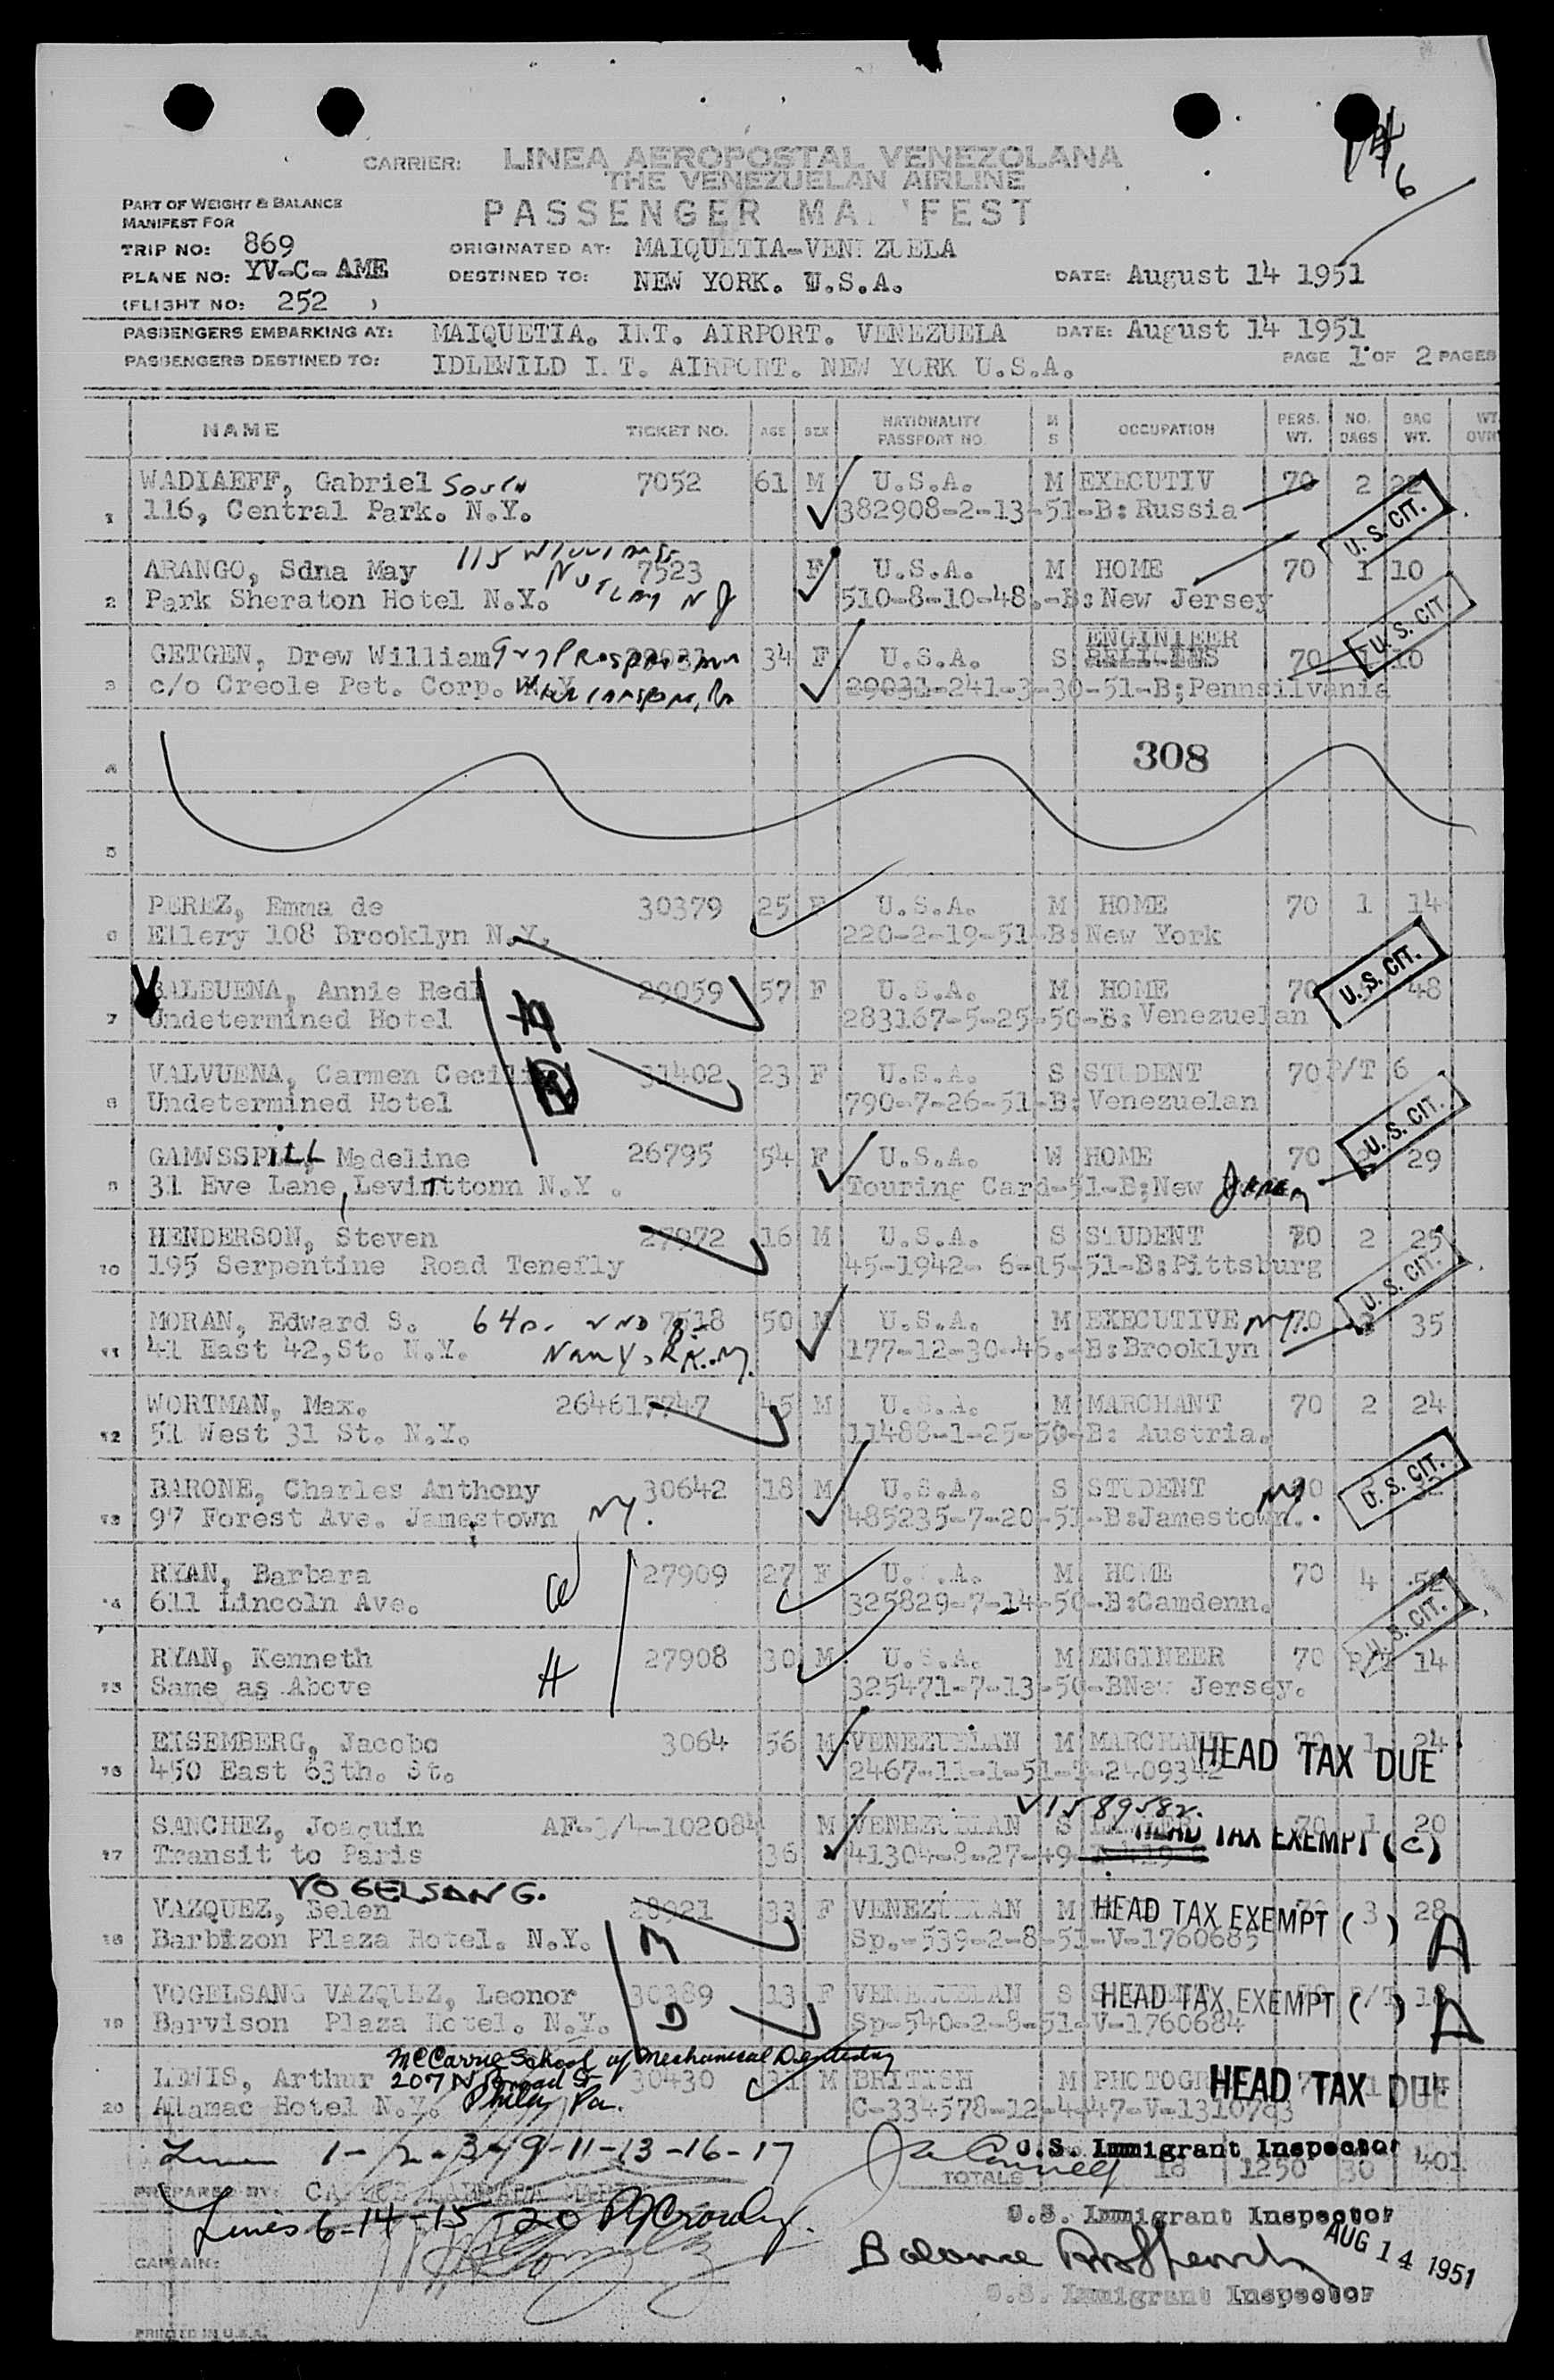 CARRIER: LINEA AEROPOSTAL VENEZOLANA
THE VENEZUELAN AIRLINE
PASSENGER MA FEST
PART OF WEIGHT & BALANCE
MANIFEST FOR
TRIP NO: 869
ORIGINATED AT: MAIQUETIA-VENEZUELA
PLANE NO: YV-C-AME
DESTINED TO: NEW YORK. U.S.A.
DATE: August 14 1951
(FLIGHT NO: 252 )
PASSENGERS EMBARKING AT: MAIQUETIA. INT. AIRPORT. VENEZUELA DATE: August 14 1951
PASSENGERS DESTINED TO: IDLEWILD I.T. AIRPORT. NEW YORK U.S.A. PAGE 1 OF 2 PAGES
NAME TICKET NO. AGE SEX NATIONALITY PASSPORT NO M S OCCUPATION PERS. WT. NO. BAGS BAG WT. WT OVR
WADIAEFF, Gabriel South 7052 61 M U.S.A. M EXECUTIV 70 2 22
1 116, Central Park. N.Y. 382908-2-13-51-B:Russia U.S. CIT.
ARANGO, Sdna May 7523 F U.S.A. M HOME 70 1 10
2 Park Sheraton Hotel N.Y. Nutley NJ 510-8-10-48.-B:New Jersey U.S. CIT.
ENGINEER
GETGEN, Drew William 34 F U.S.A. S 70 1 10
3 c/o Creole Pet. Corp. N.Y. 29031-241-3-30-51-B;Pennsilvania
4 308
5
PEREZ, Emma de 30379 25 F U.S.A. M HOME 70 1 14
6 Ellery 108 Brooklyn N.Y. 220-2-19-51-B:New York
BALBUENA, Annie Redl 29059 57 F U.S.A. M HOME 70 48
7 Undetermined Hotel M 283167-5-25-50-B:Venezuelan U.S. CIT.
VALVUENA, Carmen Cecilia 31402 23 F U.S.A. S STUDENT 70 P/T 6
8 Undetermined Hotel D 790-7-26-51-B:Venezuelan
GAMWSSPILL, Madeline 26795 54 F U.S.A. W HOME 70 2 29
9 31 Eve Lane, Levitttonn N.Y. Touring Card-51-B;New Jersey U.S. CIT.
HENDERSON, Steven 27972 16 M U.S.A. S STUDENT 70 2 25
10 195 Serpentine Road Tenefly 45-1942- 6-15-51-B:Pittsburg
MORAN, Edward S. 7518 50 M U.S.A. M EXECUTIVE NY. 70 35
11 41 East 42,St. N.Y. 177-12-30-46.-B:Brooklyn U.S. CIT.
WORTMAN, Max. 264617747 45 M U.S.A. M MARCHANT 70 2 24
12 51 West 31 St. N.Y. 11488-1-25-50-B: Austria.
BARONE, Charles Anthony 30642 18 M U.S.A. S STUDENT 70 32
13 97 Forest Ave. Jamestown NY. 485235-7-20-51-B:Jamestown. NY U.S. CIT.
RYAN, Barbara 27909 27 F U.S.A. M HOME 70 4 52
14 611 Lincoln Ave. W 325829-7-14-50-B:Camdenn.
RYAN, Kenneth 27908 30 M U.S.A. M ENGINEER 70 P/T 14
15 Same as Above H 325471-7-13-50-BNew Jersey. U.S. CIT.
EISEMBERG, Jacobo 3064 56 M VENEZUELAN M MARCHANT 70 1 24
16 450 East 63th. St. 2467-11-1-51-V-2409342 HEAD TAX DUE
V1589582.
SANCHEZ, Joaquin AF-3/4-102084 36 M VENEZUELAN S 70 1 20
17 Transit to Paris 41304-8-27-49 HEAD TAX EXEMPT (C)
VOGELSANG.
VAZQUEZ, Belen 28921 33 F VENEZUELAN M 3 28
18 Barbizon Plaza Hotel. N.Y. M Sp.-539-2-8-51-V-1760685 HEAD TAX EXEMPT ( ) A
VOGELSANG VAZQUEZ, Leonor 30389 13 F VENEZUELAN S STUDENT P/T 18
19 Barvison Plaza Hotel. N.Y. D Sp-540-2-8-51-V-1760684 HEAD TAX EXEMPT ( ) A
McCarrie School of Mechanical Dentistry
LEWIS, Arthur 207 N Broad St 30430 31 M BRITISH M PHOTOGR 1 14
20 Alamac Hotel N.Y. Phila Pa. C-334578-12-4-47-V-1310793 HEAD TAX DUE
Lines 1-2-3-9-11-13-16-17 U.S. Immigrant Inspector
TOTALS 18 1250 30 401
PREPARED BY:
Lines 6-14-15-20 U.S. Immigrant Inspector
AUG 14 1951
CAPTAIN: Balance
U.S. Immigrant Inspector
PRINTED IN U.S.A.